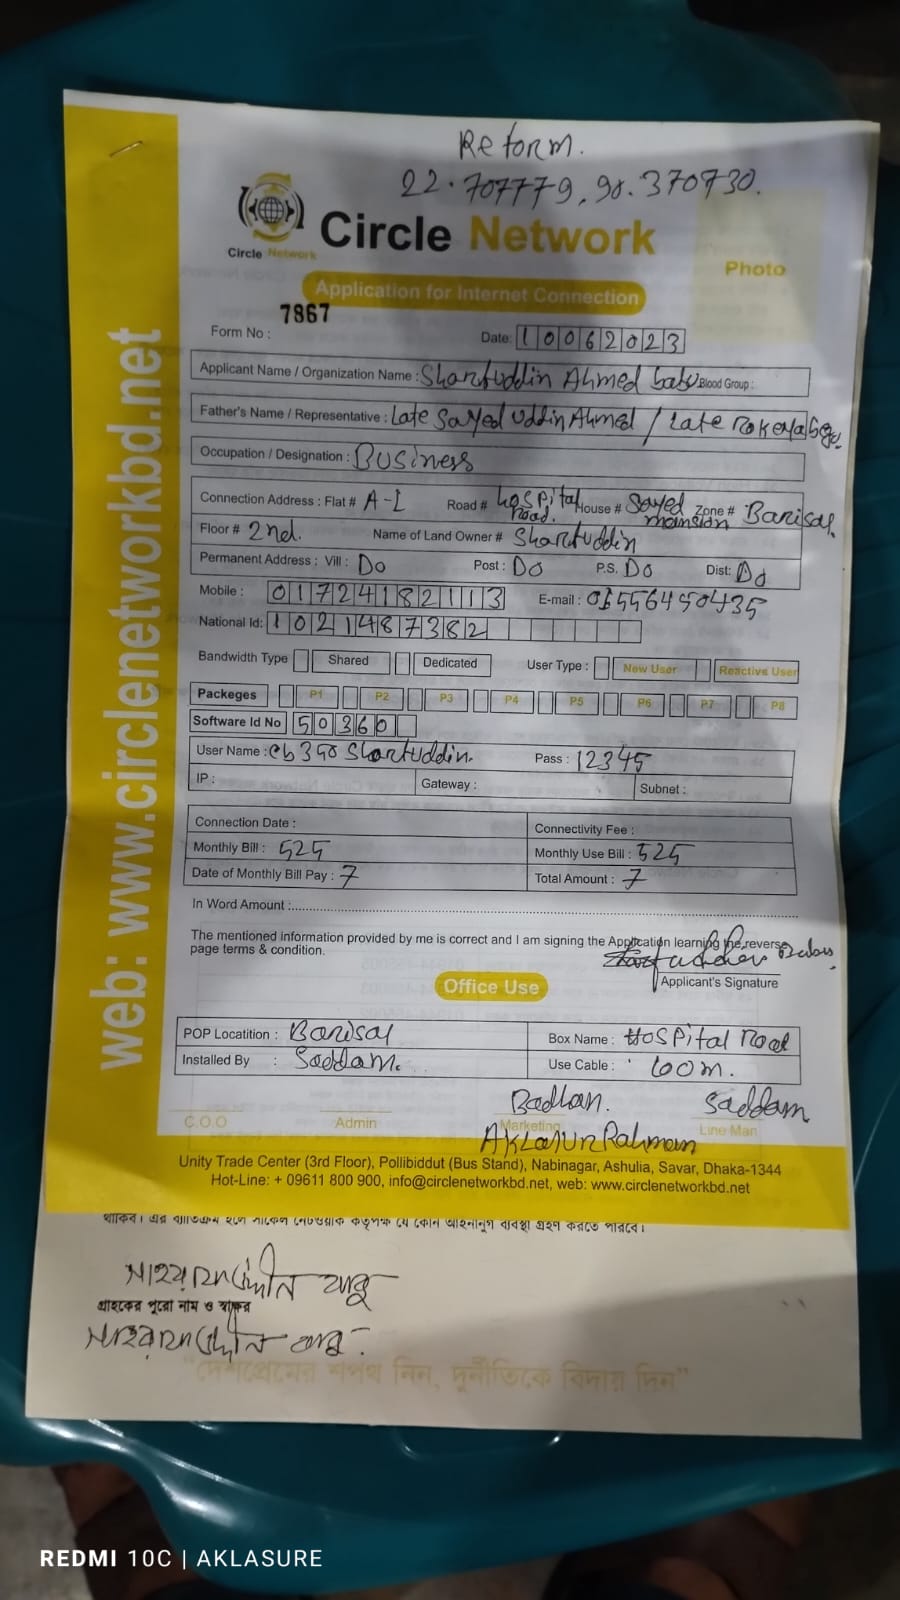 Reform.
22.707779, 90.370730.
Circle Network
Circle Network
Photo
Application for Internet Connection
7867
Form No :
Date: 10062023
Applicant Name / Organization Name : Sharfuddin Ahmed babu Blood Group :
Father's Name / Representative : Late Sayed Uddin Ahmed / Late Rokeya
Occupation / Designation : Business
Connection Address : Flat # A-1 Road # Hospital Road. House # Sayed mansion Zone # Barisal.
Floor # 2nd. Name of Land Owner # Sharfuddin
Permanent Address : Vill : Do Post : Do P.S. Do Dist: Do
Mobile : 01724182113 E-mail : 01556450435
National Id: 1021487382
Bandwidth Type Shared Dedicated User Type : New User Reactive User
Packeges P1 P2 P3 P4 P5 P6 P7 P8
Software Id No 50360
User Name : Sharfuddin. Pass : 12345
IP : Gateway : Subnet :
Connection Date : Connectivity Fee :
Monthly Bill : 525 Monthly Use Bill : 525
Date of Monthly Bill Pay : 7 Total Amount : 7
In Word Amount :
The mentioned information provided by me is correct and I am signing the Application learning the reverse
page terms & condition.
Applicant's Signature
Office Use
POP Locatition : Barisal Box Name : Hospital Road
Installed By : Saddam. Use Cable : 60m.
Badhan. Saddam
C.O.O Admin Marketing Line Man
Aklasur Rahman
Unity Trade Center (3rd Floor), Pollibiddut (Bus Stand), Nabinagar, Ashulia, Savar, Dhaka-1344
Hot-Line: + 09611 800 900, info@circlenetworkbd.net, web: www.circlenetworkbd.net
web: www.circlenetworkbd.net
থাকিব। এর ব্যতিক্রম হলে সার্কেল নেটওয়ার্ক কর্তৃপক্ষ যে কোন আইনানুগ ব্যবস্থা গ্রহণ করতে পারবে।
গ্রাহকের পুরো নাম ও স্বাক্ষর
"দেশপ্রেমের শপথ নিন, দুর্নীতিকে বিদায় দিন"
REDMI 10C | AKLASURE